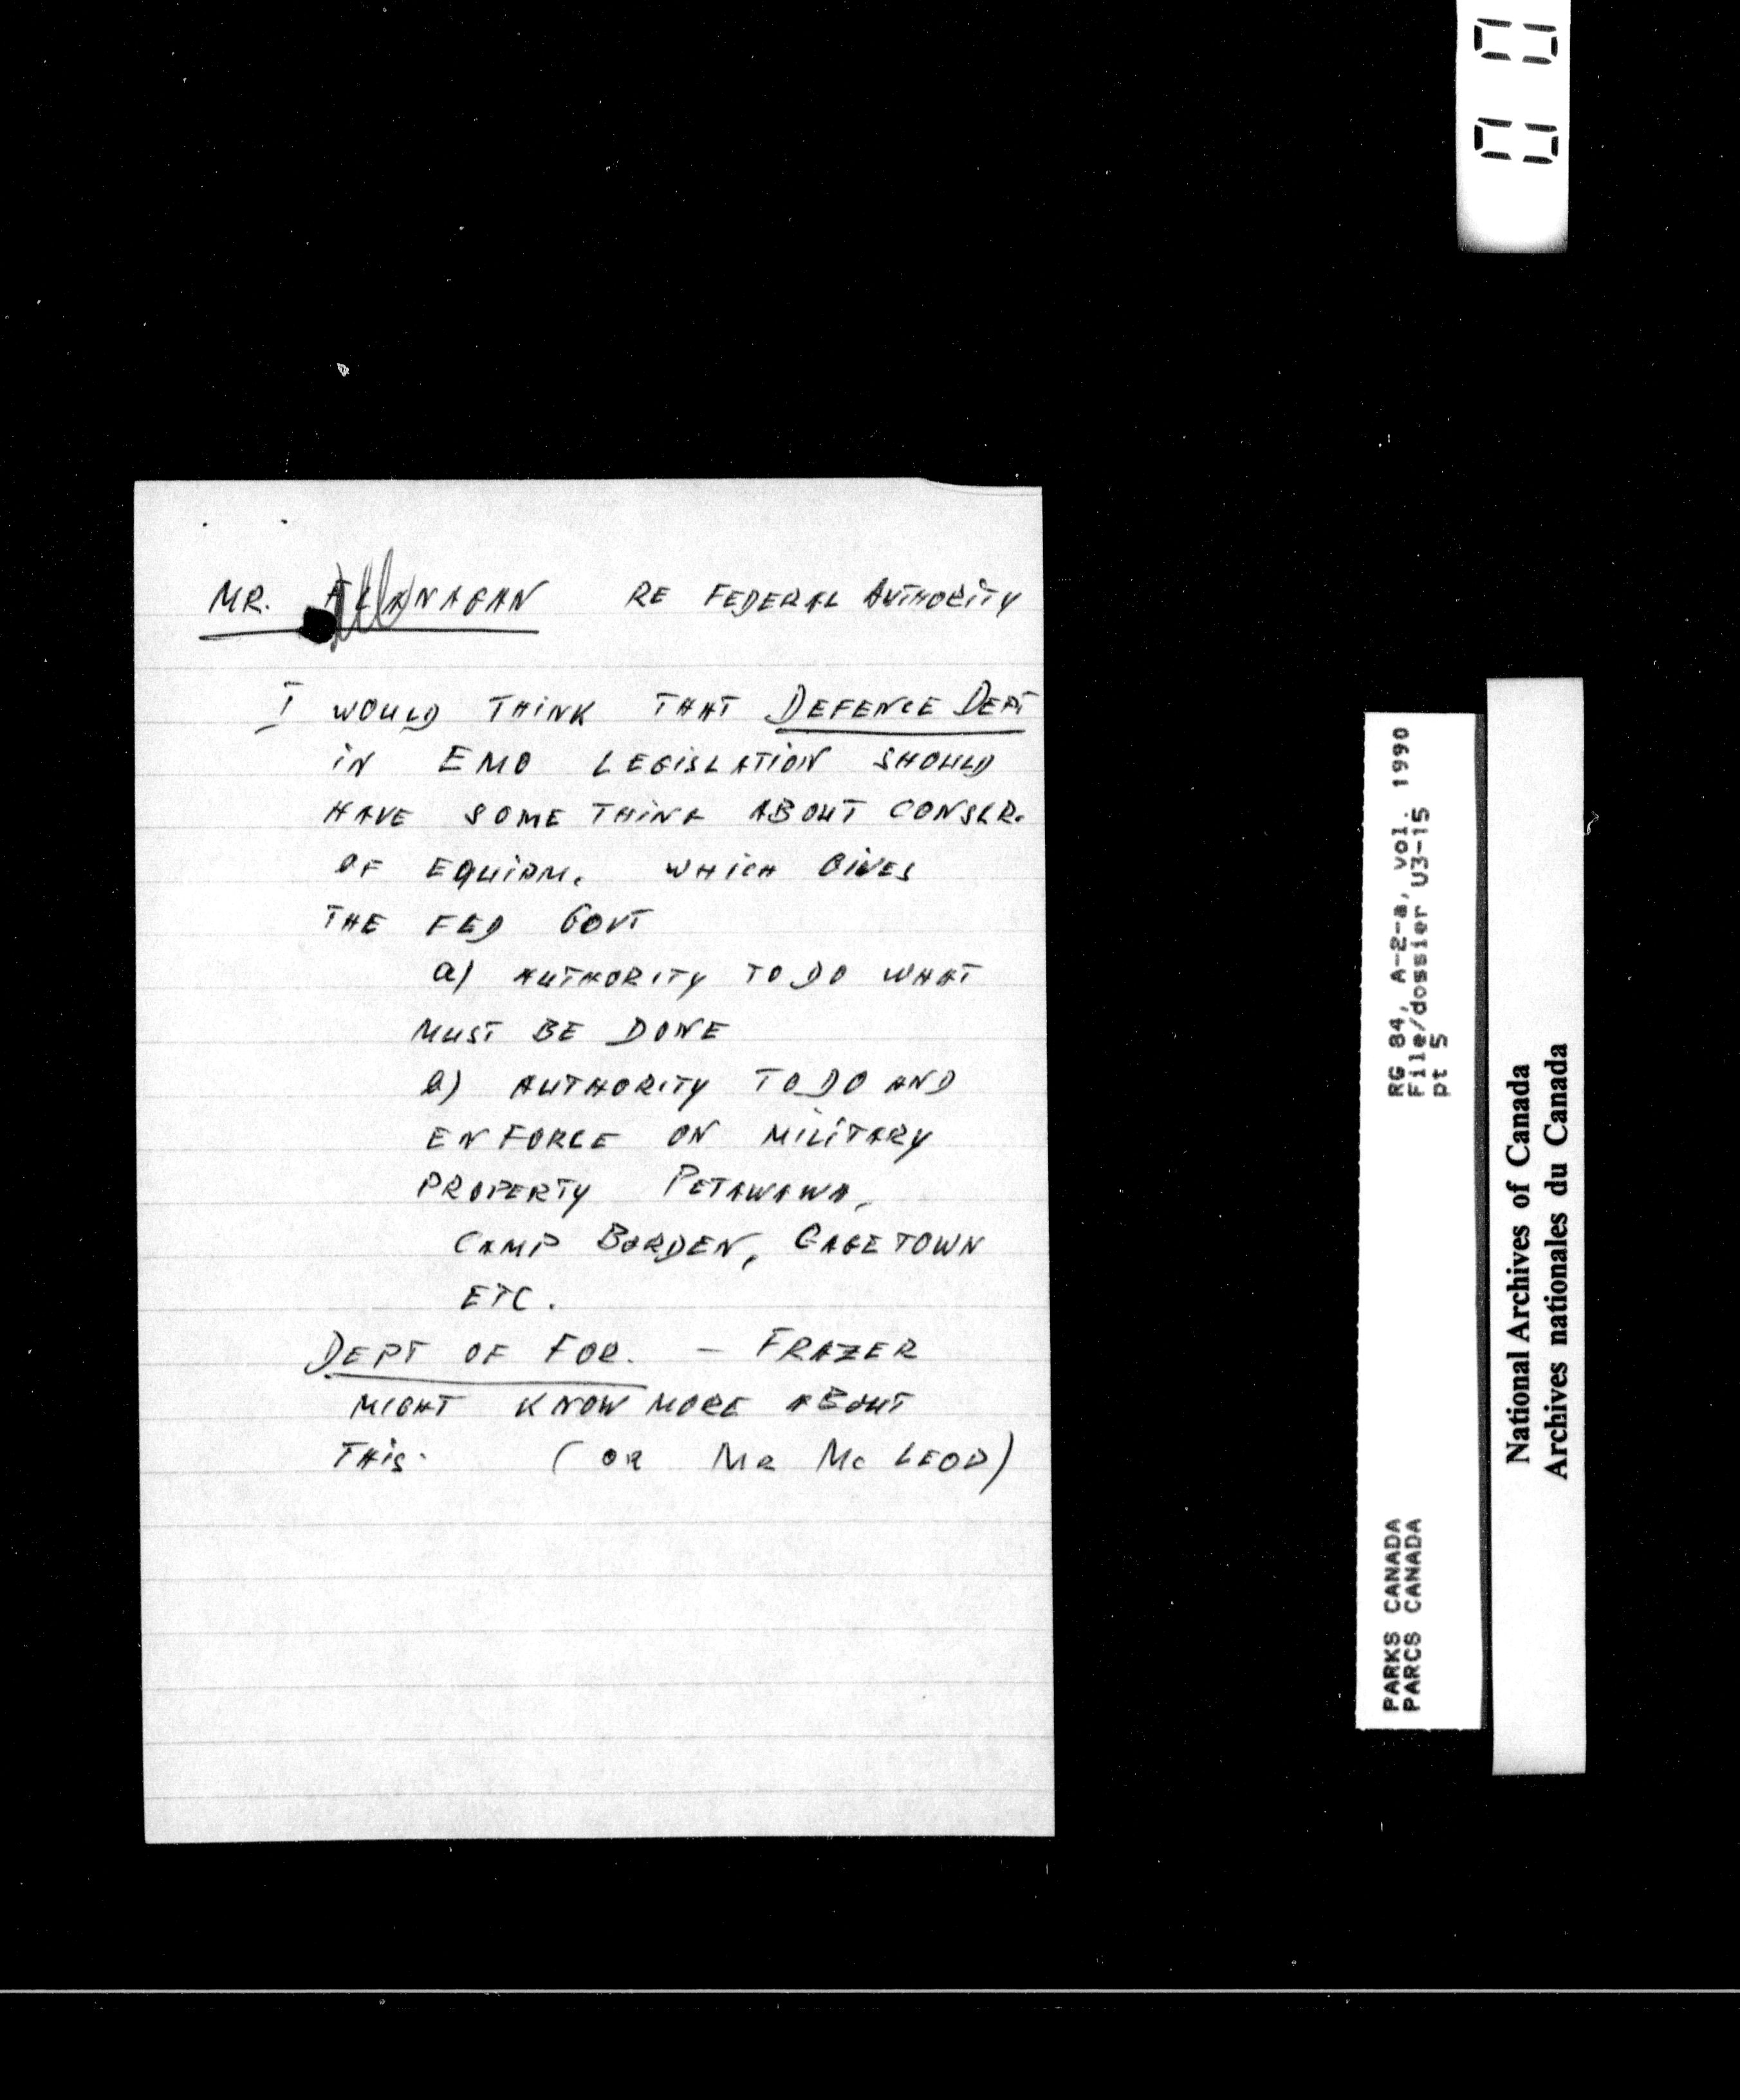 MR. FLANAGAN RE FEDERAL AUTHORITY
I WOULD THINK THAT DEFENCE DEPT
IN EMO LEGISLATION SHOULD
HAVE SOME THING ABOUT CONSER.
OF EQUIPM. WHICH GIVES
THE FED GOVT
a) AUTHORITY TO DO WHAT
MUST BE DONE
b) AUTHORITY TO DO AND
ENFORCE ON MILITARY
PROPERTY PETAWAWA,
CAMP BORDEN, GAGETOWN
ETC.
DEPT OF FOR. - FRAZER
MIGHT KNOW MORE ABOUT
THIS. (OR MR MC LEOD)
RG 84, A-2-a, vol. 1990
File/dossier U3-15
pt 5
PARKS CANADA
PARCS CANADA
National Archives of Canada
Archives nationales du Canada